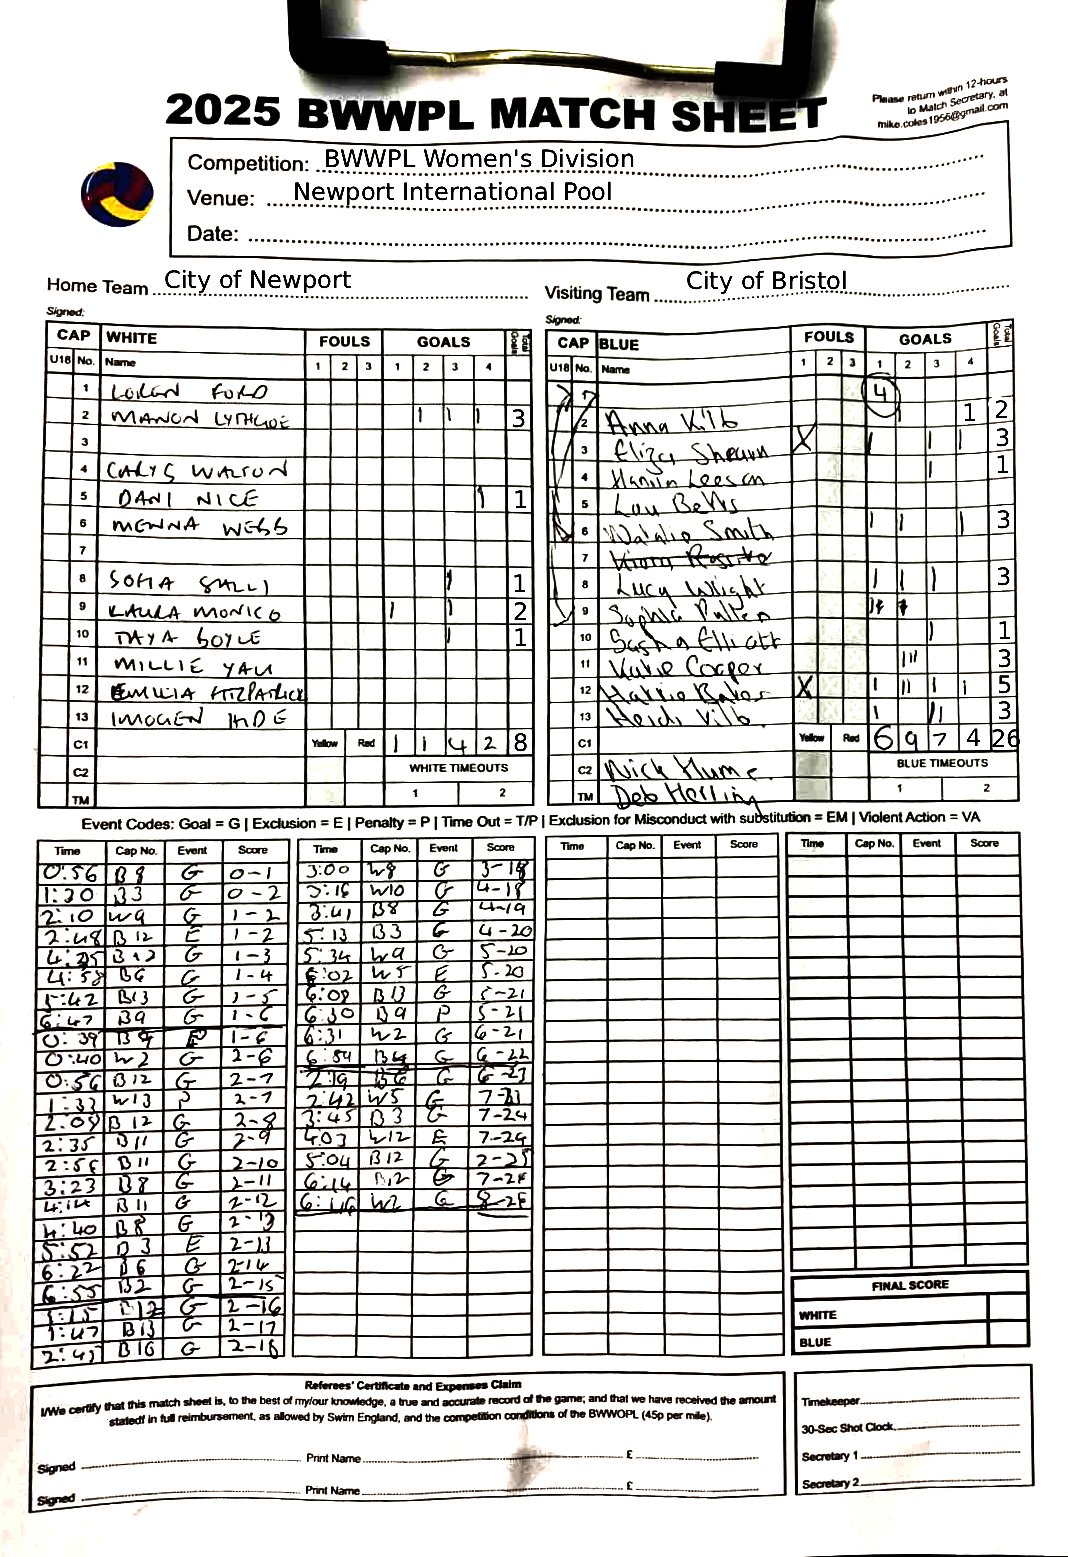 Please return within 12-hours
to Match Secretary, at
mike.coles1956@gmail.com
2025 BWWPL MATCH SHEET
Competition: BWWPL Women's Division
Venue: Newport International Pool
Date:
Home Team City of Newport
Visiting Team City of Bristol
Signed:
Signed:
CAP WHITE FOULS GOALS Total Goals
U18 No. Name 1 2 3 1 2 3 4
1 LOREN FORD
2 MANON LYTHGOE | | | 3
3
4 CARYS WALTON
5 DANI NICE | 1
6 MENNA WEBB
7
8 SOFIA SMALLI | 1
9 LAURA MONICO | | 2
10 TAYA BOYLE | 1
11 MILLIE YAU
12 EMILIA FITZPATRICK
13 IMOGEN INDE
C1 Yellow Red 1 1 4 2 8
C2 WHITE TIMEOUTS
TM 1 2
CAP BLUE FOULS GOALS Total Goals
U18 No. Name 1 2 3 1 2 3 4
1 4
2 Anna Kilb 1 2
3 Eliza Shearn X | | | 3
4 Leeson | 1
5 Lou Betts
6 Natalie Smith | | | 3
7
8 Lucy Wright | | | 3
9 Sophie Pullen
10 Sasha Elliott | 1
11 Katie Cooper ||| 3
12 Hattie Baker X | || | | 5
13 Heidi Kilb | || 3
C1 Yellow Red 6 9 7 4 26
C2 Nick Hume BLUE TIMEOUTS
TM Deb Herling 1 2
Event Codes: Goal = G | Exclusion = E | Penalty = P | Time Out = T/P | Exclusion for Misconduct with substitution = EM | Violent Action = VA
Time Cap No. Event Score
0:56 B8 G 0-1
1:30 B3 G 0-2
2:10 W9 G 1-2
2:48 B12 E 1-2
4:25 B12 G 1-3
4:58 B6 G 1-4
5:42 B13 G 1-5
6:47 B9 G 1-6
0:39 B9 P 1-6
0:40 W2 G 2-6
0:56 B12 G 2-7
1:33 W13 P 2-7
2:08 B12 G 2-8
2:35 B11 G 2-9
2:56 B11 G 2-10
3:23 B8 G 2-11
4:14 B11 G 2-12
4:40 B8 G 2-13
5:52 B3 E 2-13
6:22 B6 G 2-14
6:55 B2 G 2-15
1:15 B12 G 2-16
1:47 B13 G 2-17
2:45 B10 G 2-18
Time Cap No. Event Score
3:00 W8 G 3-18
3:16 W10 G 4-18
3:41 B8 G 4-19
5:13 B3 G 4-20
5:34 W9 G 5-20
6:02 W5 E 5-20
6:08 B13 G 5-21
6:30 B9 P 5-21
6:31 W2 G 6-21
6:54 B4 G 6-22
2:19 B6 G 6-23
2:42 W5 G 7-23
3:45 B3 G 7-24
4:03 W12 E 7-24
5:04 B12 G 7-25
6:14 B12 G 7-26
6:46 W2 G 8-26
Time Cap No. Event Score
Time Cap No. Event Score
FINAL SCORE
WHITE
BLUE
Referees' Certificate and Expenses Claim
I/We certify that this match sheet is, to the best of my/our knowledge, a true and accurate record of the game; and that we have received the amount
stated/ in full reimbursement, as allowed by Swim England, and the competition conditions of the BWWOPL (45p per mile).
Signed Print Name £
Signed Print Name £
Timekeeper
30-Sec Shot Clock
Secretary 1
Secretary 2